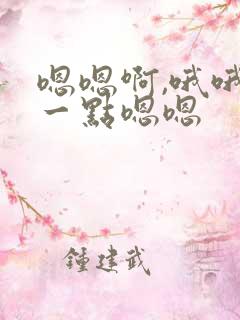 嗯嗯啊,哦哦
一點嗯嗯
鍾建武